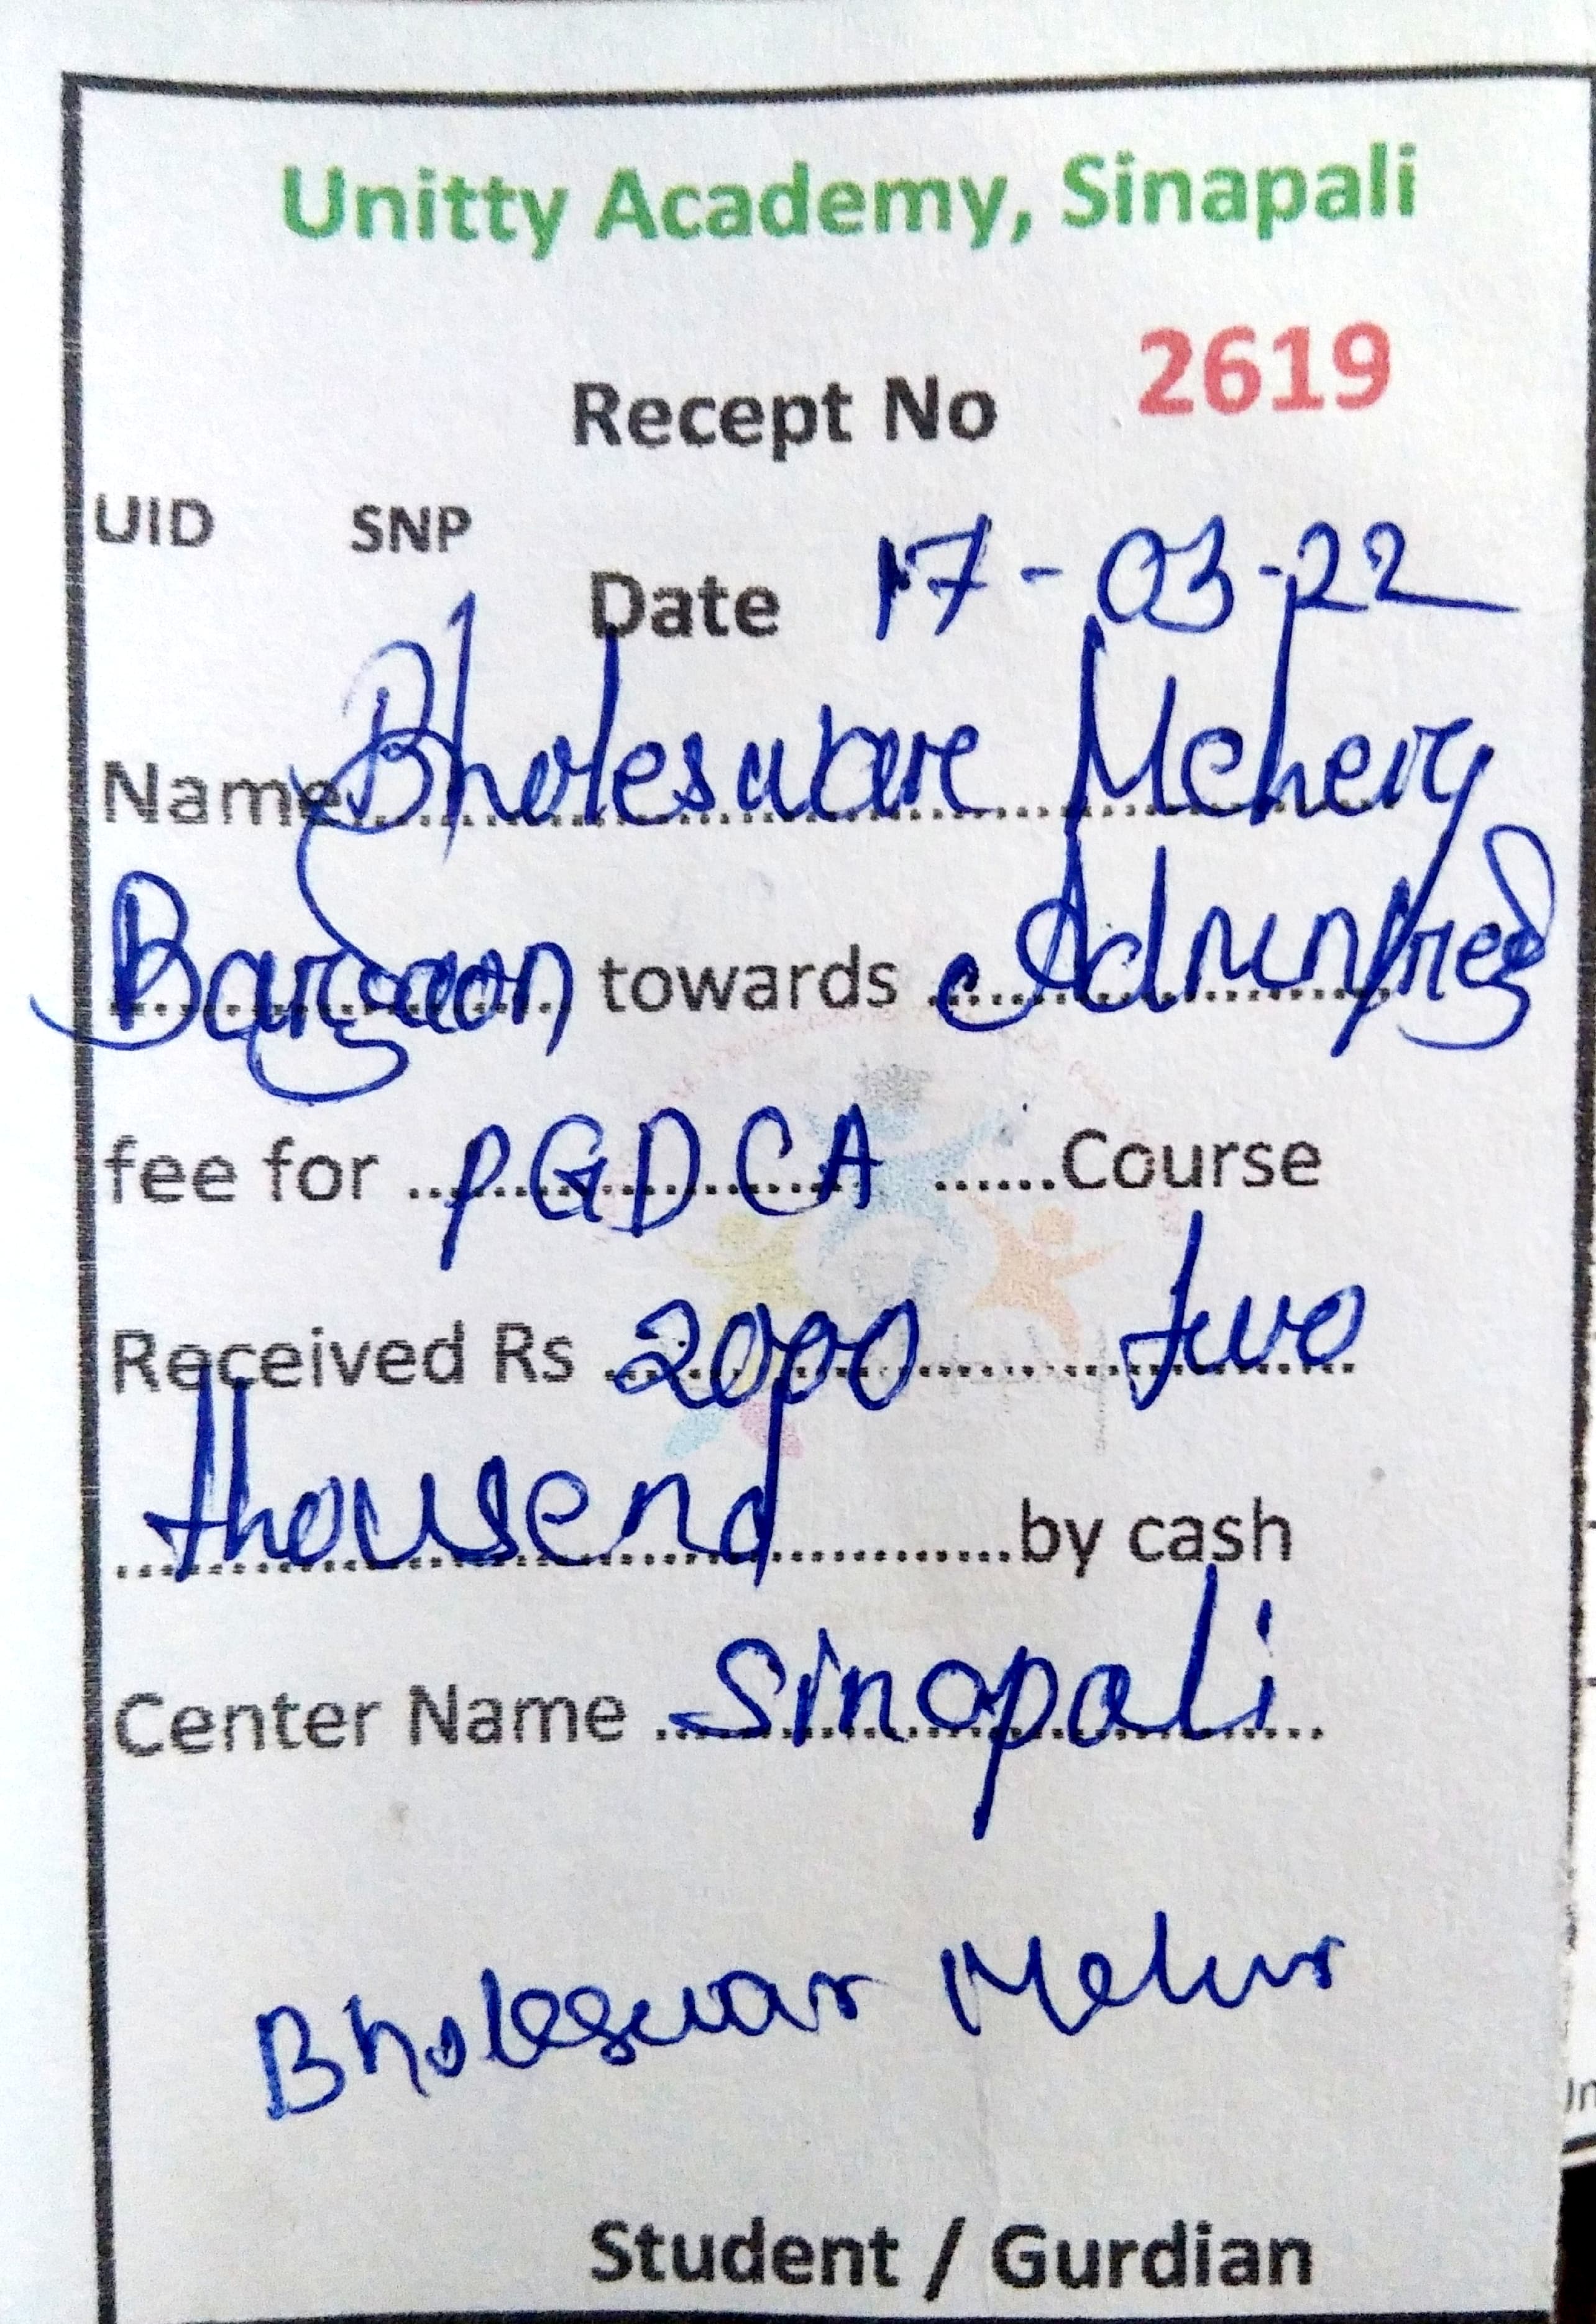 Unitty Academy, Sinapali
Recept No 2619
UID SNP
Date 17-03-22
Name Bholeswar Meher
Bargaon towards
fee for PGDCA Course
Received Rs 2000 two
thousend by cash
Center Name Sinapali
Bholeswar Meher
Student / Gurdian